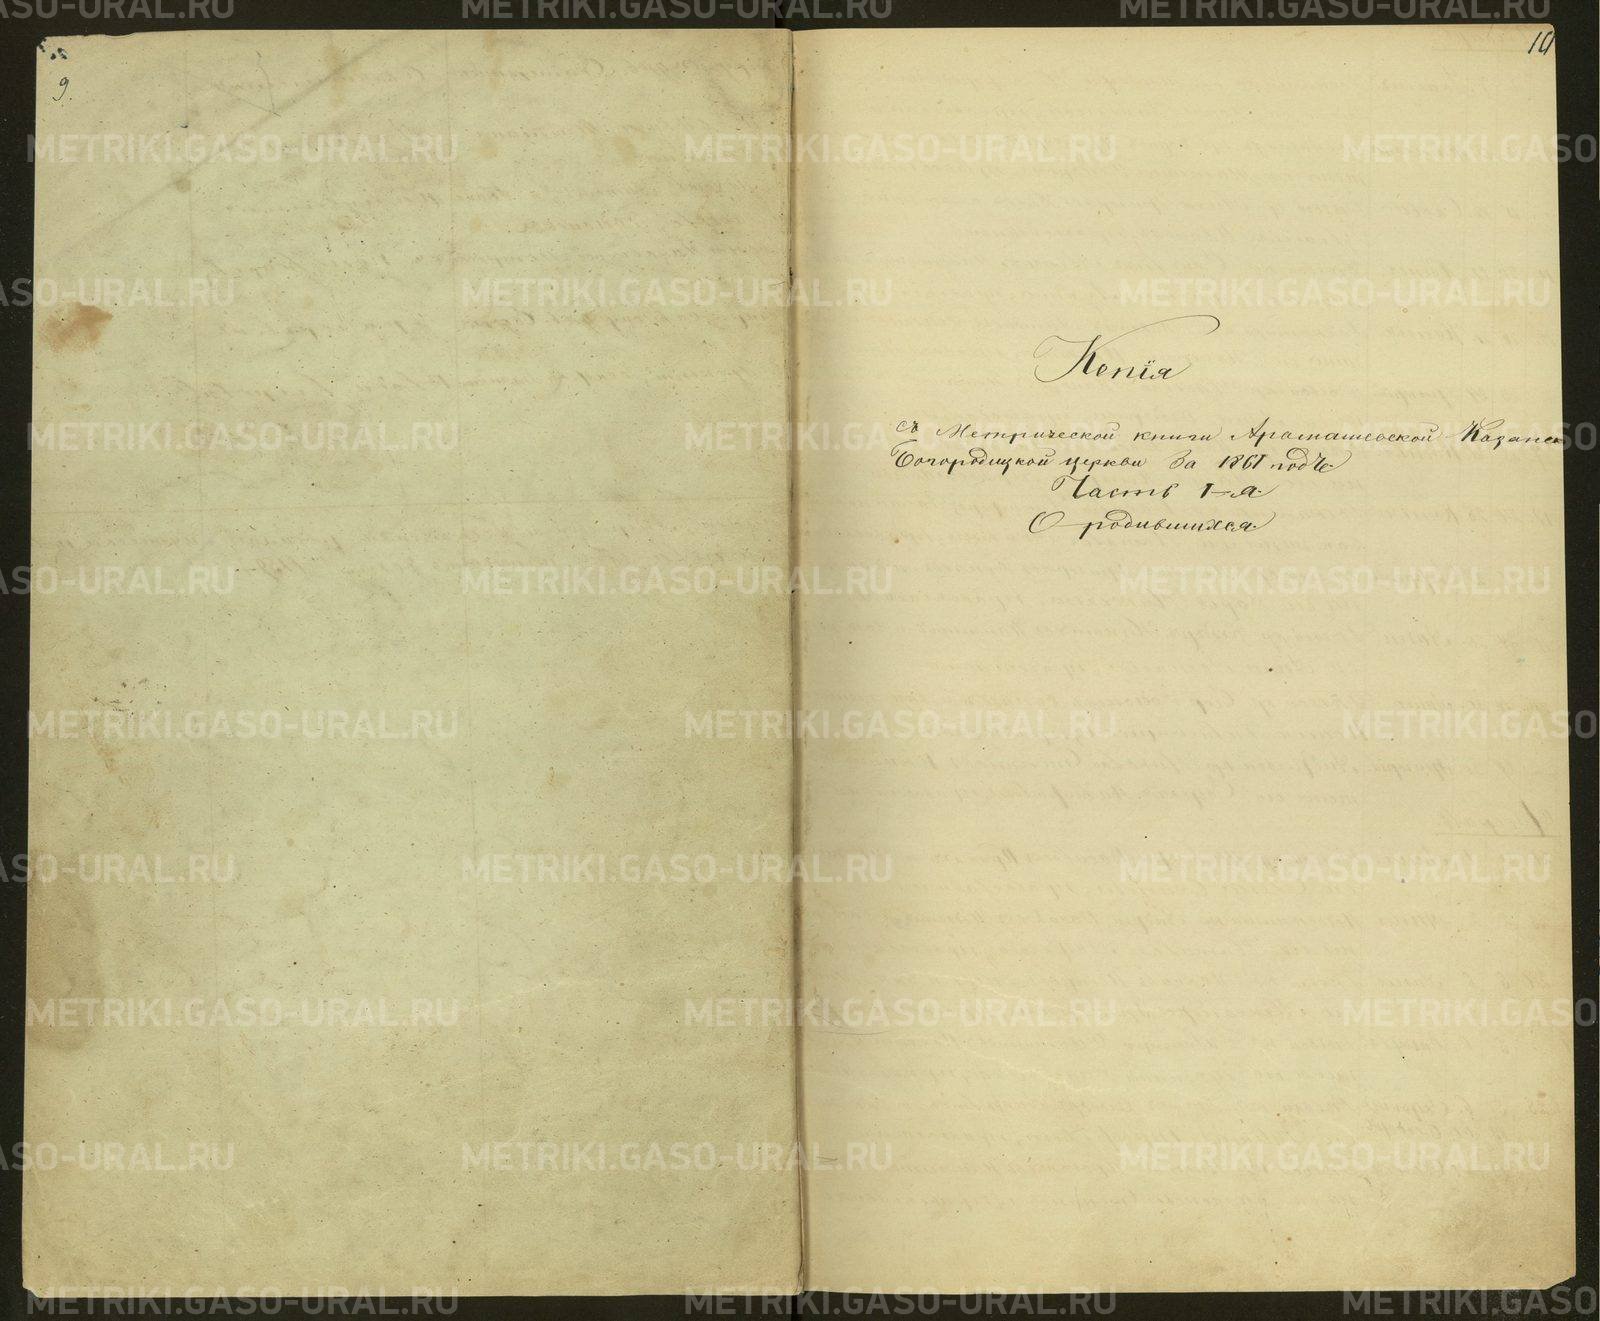 9.
10
Копія
съ Метрической книги Арамашевской Казанск
Богородицкой церкви за 1861 годъ.
Часть I-я.
О родившихся.
METRIKI.GASO-URAL.RU